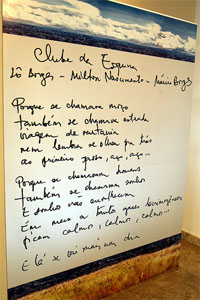 Clube da Esquina
Lô Borges - Milton Nascimento - Márcio Borges
Porque se chamava moço
também se chamava estrada
viagem de ventania
nem lembra se olhou pra trás
ao primeiro passo, aço, aço...
Porque se chamavam homens
também se chamavam sonhos
E sonhos não envelhecem
Em meio a tantos gases lacrimogênios
ficam calmos, calmos, calmos...
E lá se vai mais um dia